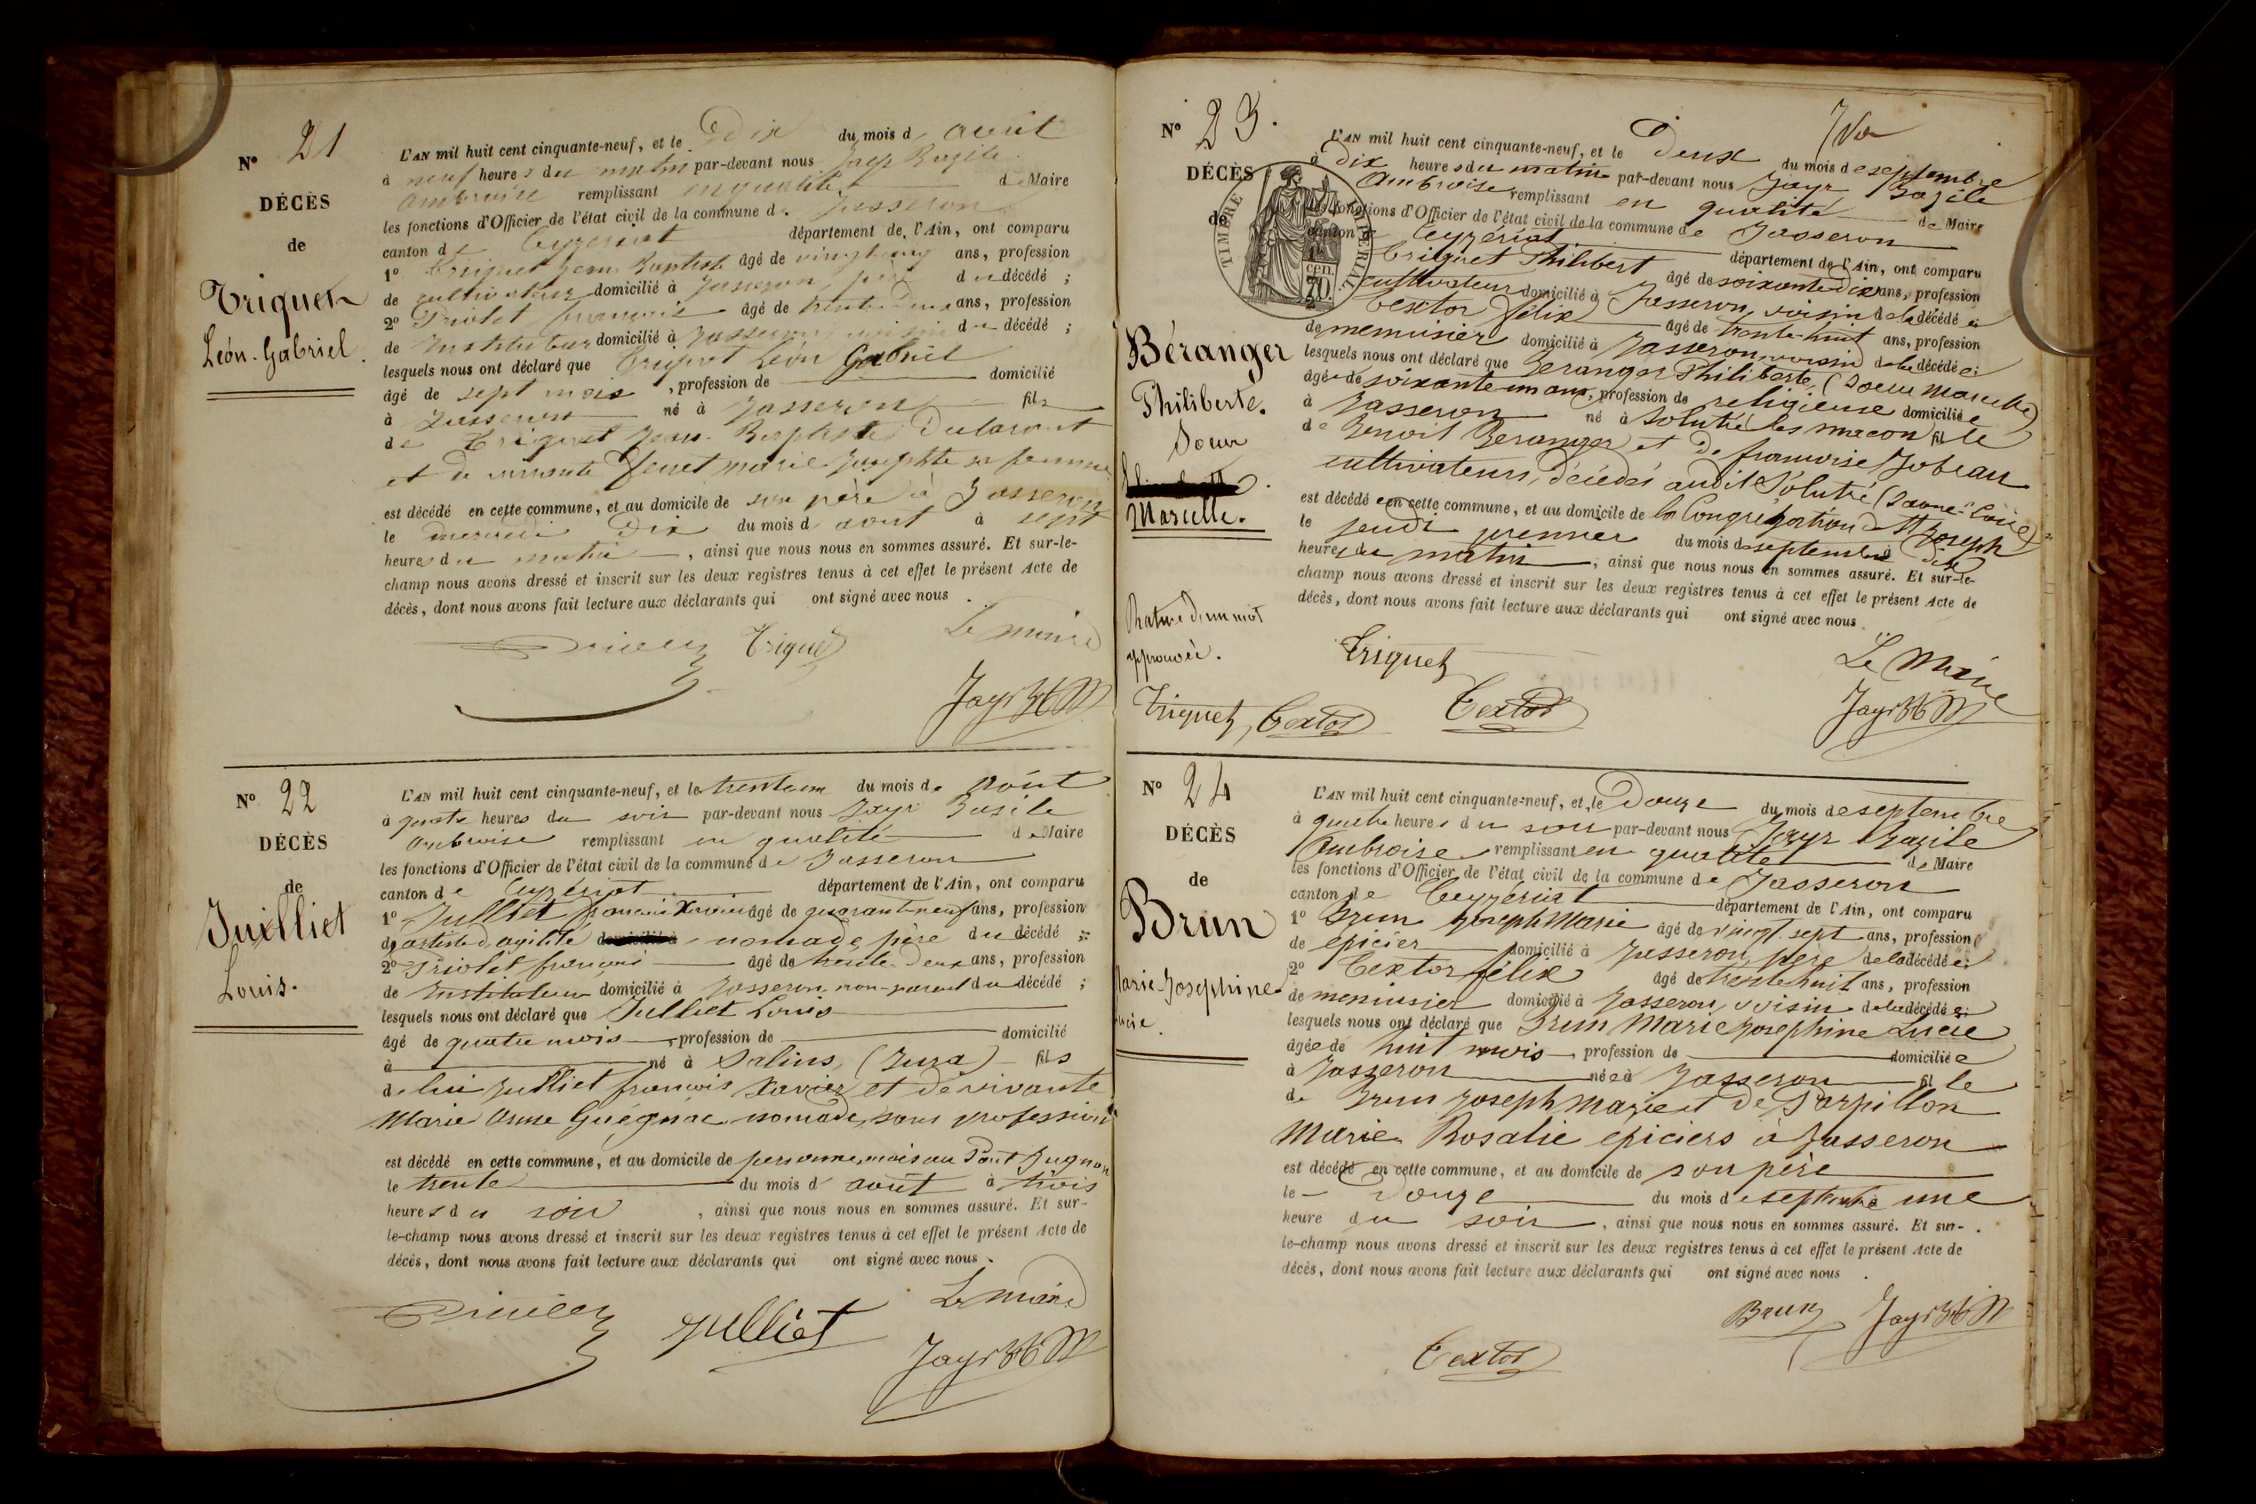 N° 21
DÉCÈS
de
Triquet
Léon-Gabriel.
L'AN mil huit cent cinquante-neuf, et le Dix du mois d août
à neuf heures du matin par-devant nous Jayr Bazile
Ambroise remplissant en qualité de Maire
les fonctions d'Officier de l'état civil de la commune de Jasseron
canton de Ceyzériat département de l'Ain, ont comparu
1° Triquet Jean Baptiste âgé de vingt cinq ans, profession
de cultivateur domicilié à Jasseron, père du décédé ;
2° Priolet françois âgé de trente deux ans, profession
de Instituteur domicilié à Jasseron, voisin du décédé ;
lesquels nous ont déclaré que Triquet Léon Gabriel
âgé de sept mois, profession de domicilié
à Jasseron né à Jasseron fils
de Triquet Jean-Baptiste Déclarant
et de vivante Feuret marie Josephte sa femme
est décédé en cette commune, et au domicile de son père à Jasseron
le mercredi Dix du mois d août à sept
heures du matin, ainsi que nous nous en sommes assuré. Et sur-le-
champ nous avons dressé et inscrit sur les deux registres tenus à cet effet le présent Acte de
décès, dont nous avons fait lecture aux déclarants qui ont signé avec nous.
Triquet Le maire
N° 22
DÉCÈS
de
Juilliet
Louis.
L'AN mil huit cent cinquante-neuf, et le trente un du mois de Août
à quatre heures du soir par-devant nous Jayr Bazile
Ambroise remplissant en qualité de Maire
les fonctions d'Officier de l'état civil de la commune de Jasseron
canton de Ceyzériat département de l'Ain, ont comparu
1° Julliet françois Xavier âgé de quarant-neuf ans, profession
de artiste d'agilité nomade, père du décédé ;
2° Priolet françois âgé de trente-deux ans, profession
de Instituteur domicilié à Jasseron, non-parent du décédé ;
lesquels nous ont déclaré que Julliet Louis
âgé de quatre mois profession de domicilié
à né à Salins, (Jura) fils
de lui Julliet françois Xavier et de vivante
Marie Anne Guégnac nomade, sans profession
est décédé en cette commune, et au domicile de personne, mais au Pont Jugnon
le trente du mois d août à trois
heures du soir, ainsi que nous nous en sommes assuré. Et sur-
le-champ nous avons dressé et inscrit sur les deux registres tenus à cet effet le présent Acte de
décès, dont nous avons fait lecture aux déclarants qui ont signé avec nous.
Julliet Le maire
N° 23.
DÉCÈS
de
TIMBRE IMPÉRIAL
cen.
70
Béranger
Philiberte.
Soeur
Marcelle.
Rature d'un mot
approuvée.
Triquet, Textor
L'AN mil huit cent cinquante-neuf, et le Deux du mois de septembre
à dix heures du matin par-devant nous Jayr Bazile
Ambroise remplissant en qualité de Maire
les fonctions d'Officier de l'état civil de la commune de Jasseron
canton de Ceyzériat département de l'Ain, ont comparu
Triquet Philibert âgé de soixante dix ans, profession
cultivateur domicilié à Jasseron, voisin de la décédée
Textor félix âgé de trente-huit ans, profession
de menuisier domicilié à Jasseron, voisin de la décédée ;
lesquels nous ont déclaré que Beranger Philiberte, (Soeur Marcelle)
âgée de soixante un ans, profession de religieuse domiciliée
à Jasseron né à Solutré les macon fille
de Benoit Beranger et de francoise Jobeau
cultivateurs, décédés audit Solutré (Saone-Loire)
est décédée en cette commune, et au domicile de la Congrégation de St Joseph
le jeudi premier du mois de septembre à dix
heures du matin, ainsi que nous nous en sommes assuré. Et sur-le-
champ nous avons dressé et inscrit sur les deux registres tenus à cet effet le présent Acte de
décès, dont nous avons fait lecture aux déclarants qui ont signé avec nous.
Triquet Le Maire
Textor
N° 24
DÉCÈS
de
Brun
Marie-Josephine
L'AN mil huit cent cinquante-neuf, et le Douze du mois de septembre
à quatre heures du soir par-devant nous Jayr Bazile
Ambroise remplissant en qualité de Maire
les fonctions d'Officier de l'état civil de la commune de Jasseron
canton de Ceyzériat département de l'Ain, ont comparu
1° Brun Joseph Marie âgé de vingt-sept ans, profession
de épicier domicilié à Jasseron, père de la décédée ;
2° Textor félix âgé de trente huit ans, profession
de menuisier domicilié à Jasseron, voisin de la décédée ;
lesquels nous ont déclaré que Brun Marie Josephine Lucie
âgée de huit mois, profession de domiciliée
à Jasseron née à Jasseron fille
de Brun Joseph Marie et de Parpillon
Marie Rosalie épiciers à Jasseron
est décédé en cette commune, et au domicile de son père
le Douze du mois de septembre à une
heure du soir, ainsi que nous nous en sommes assuré. Et sur-
le-champ nous avons dressé et inscrit sur les deux registres tenus à cet effet le présent Acte de
décès, dont nous avons fait lecture aux déclarants qui ont signé avec nous.
Brun
Textor